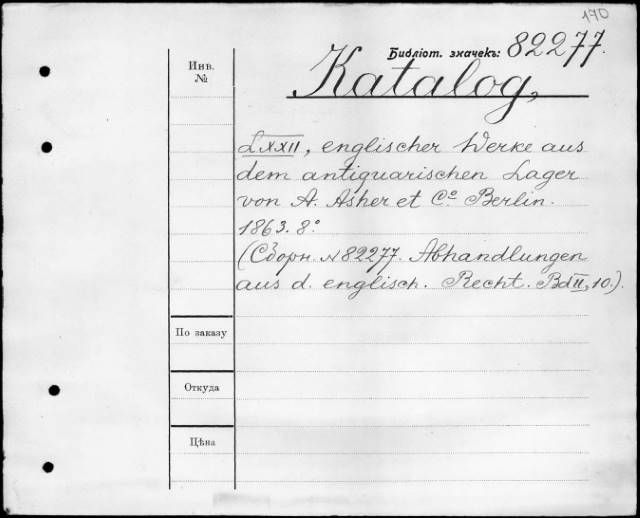 170
Библіот. значекъ: 82277.
Инв.
№
Katalog,
LXXII, englischer Werke aus
dem antiquarischen Lager
von A. Asher et Co. Berlin.
1863. 8°
(Сборн. № 82277. Abhandlungen
aus d. englisch. Recht. Bd II, 10.).
По заказу
Откуда
Цѣна